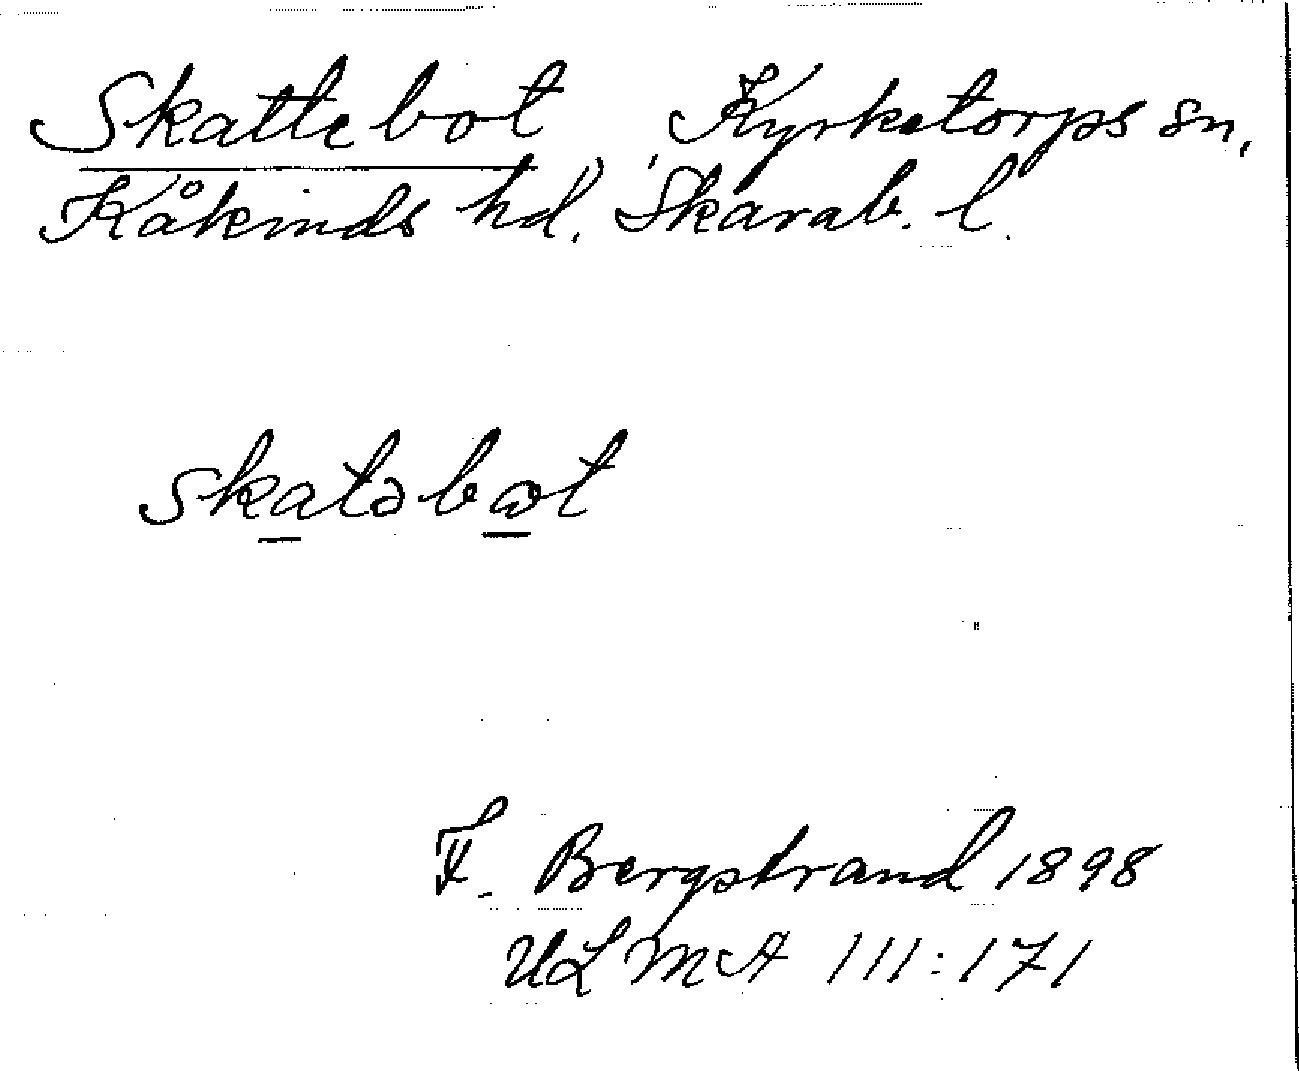 Skattebot, Kyrketorps sn,
Kåkinds hd, Skarab. l.
skatəbωt
F. Bergstrand 1898
ULMA 111:171